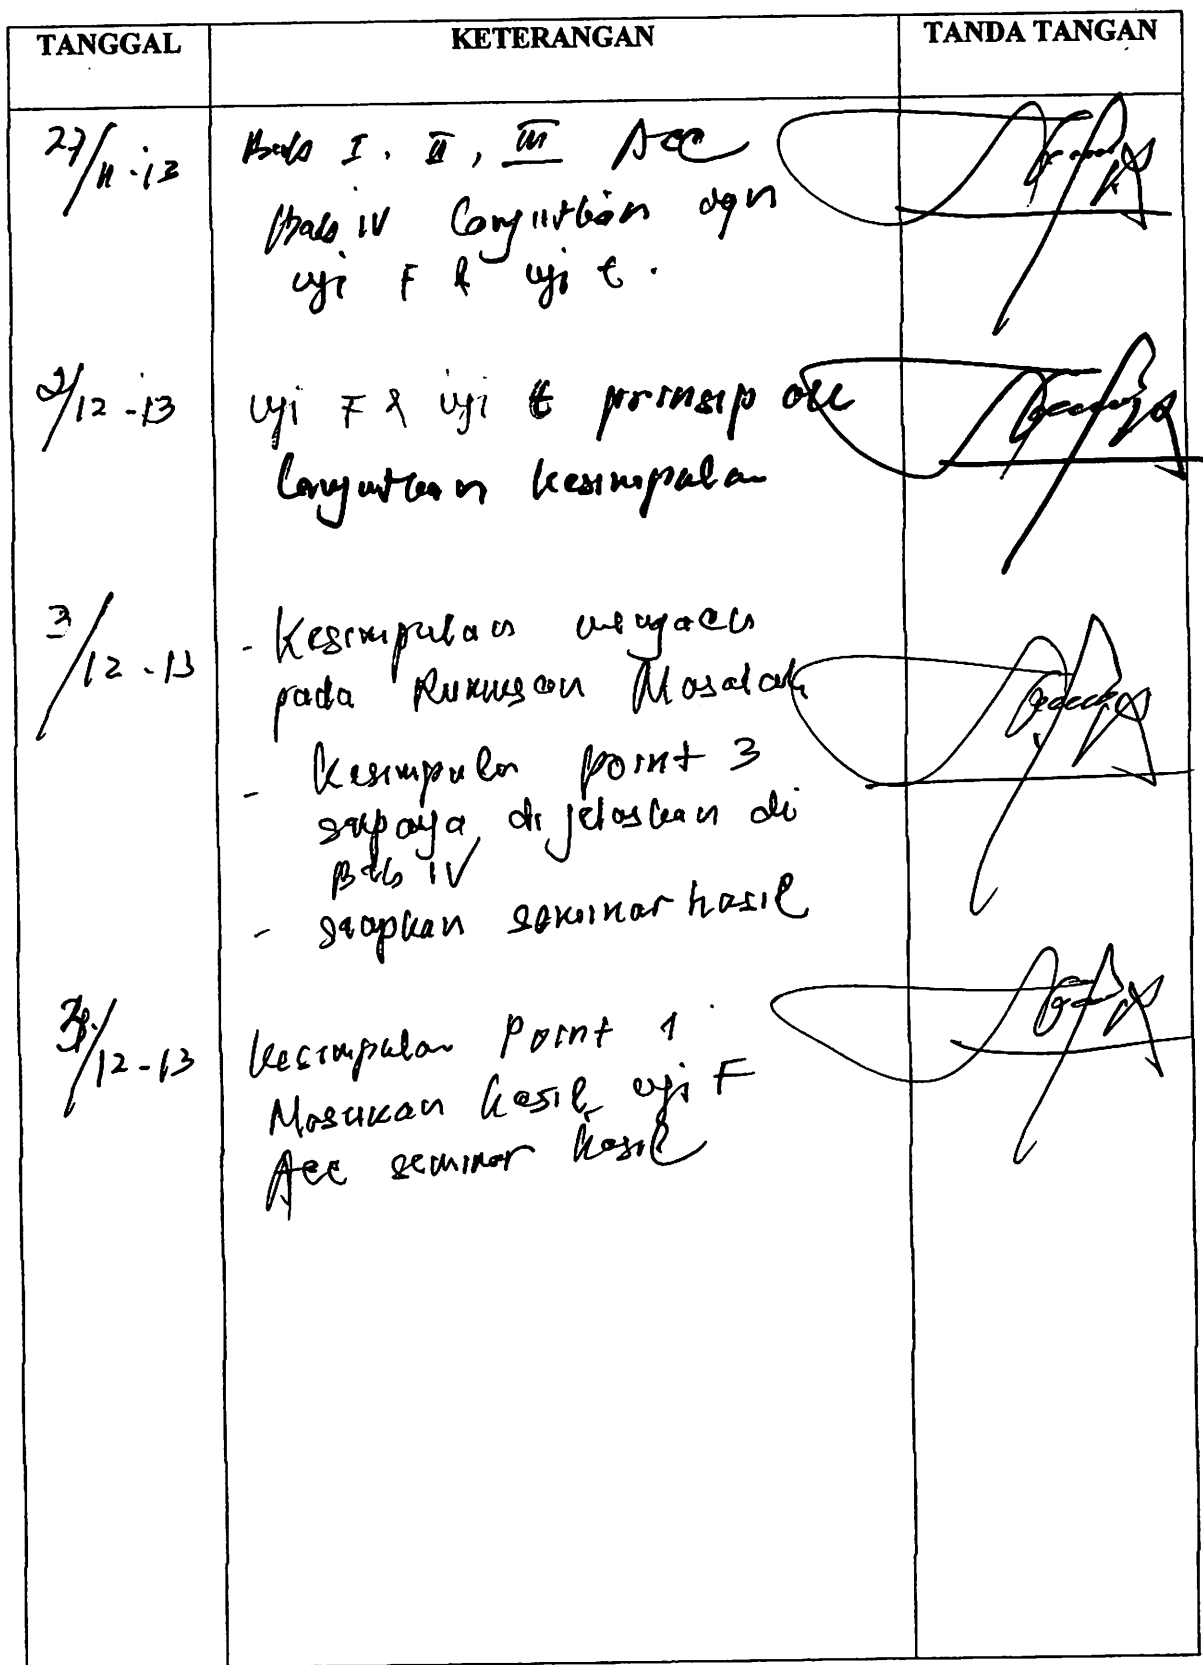 TANGGAL KETERANGAN TANDA TANGAN
27/11-13 Bab I. II, III Acc
Bab IV Lanjutkan dgn
uji F & uji t.
2/12-13 uji F & uji t prinsip ok
Lanjutkan kesimpulan
3/12-13 - Kesimpulan mengacu
pada Rumusan Masalah
- Kesimpulan point 3
supaya di jelaskan di
Bab IV
- siapkan seminar hasil
/12-13 Kesimpulan Point 1
Masukan hasil uji F
Acc seminar hasil